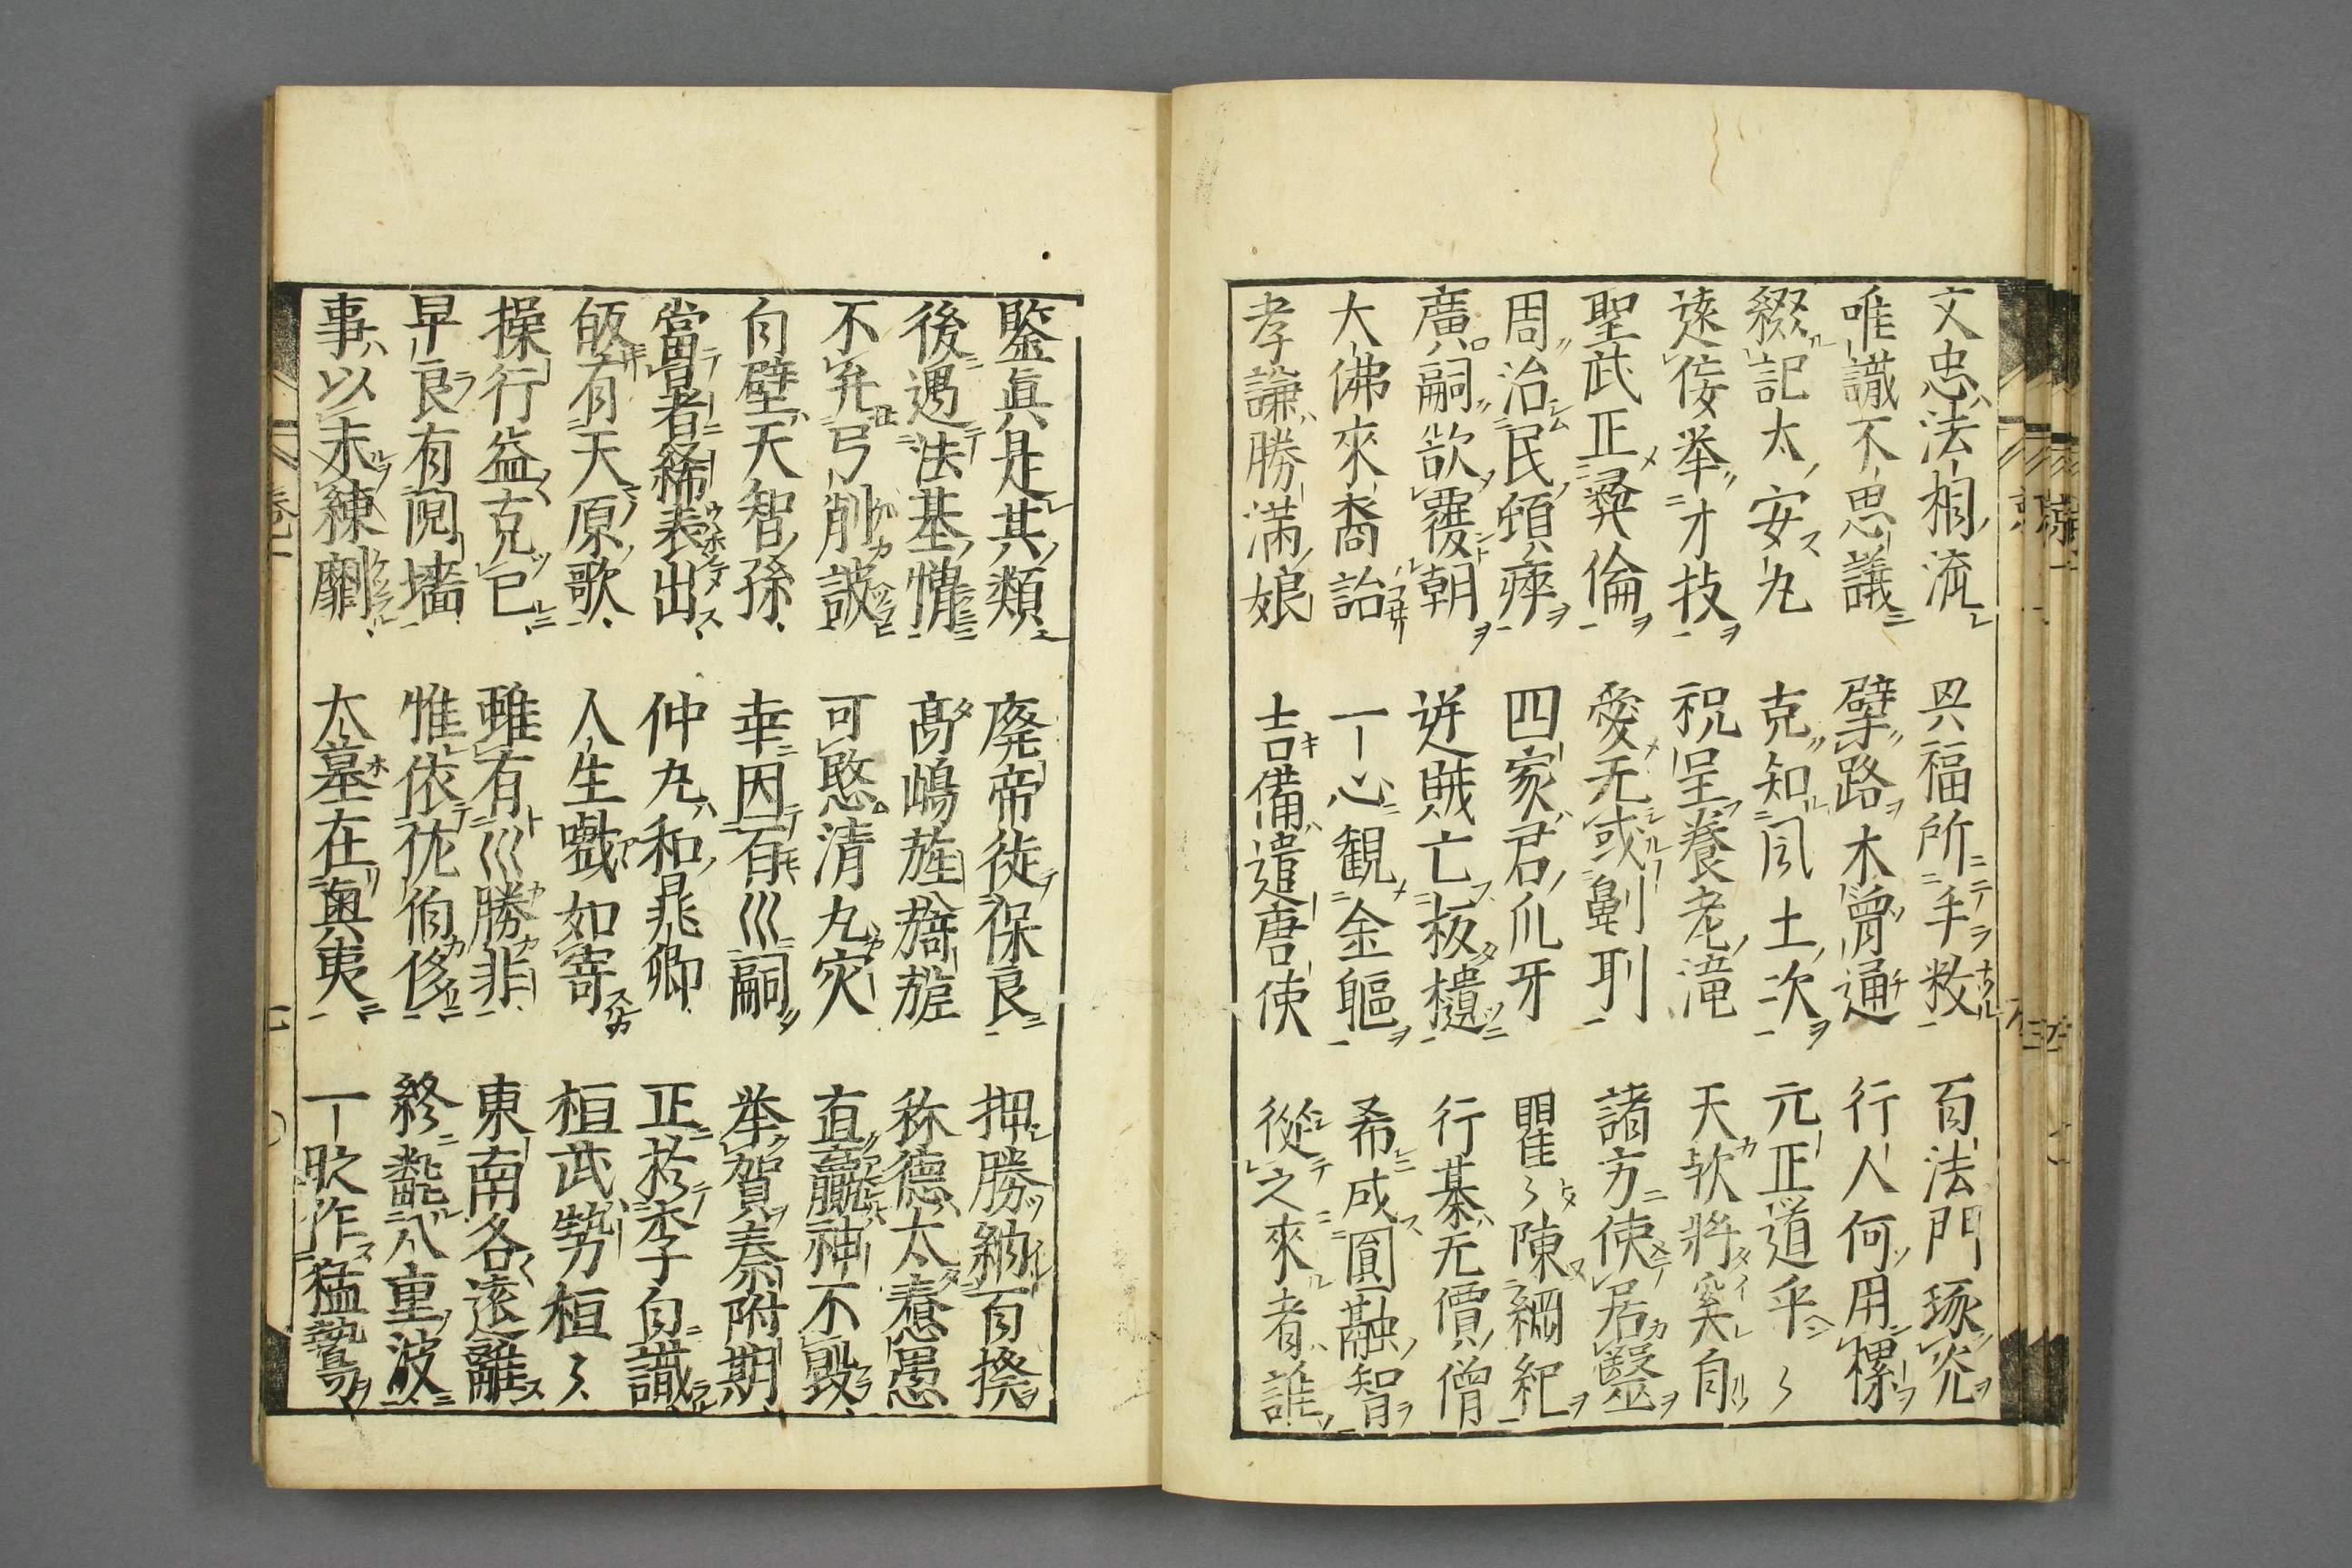 文忠法相流 㒷福所手敎 百法門琢究
唯識不思議 擘路木曽通 行人何用樏
綴記太安丸 克知風土次 元正道平〻
遠佞举才技 祝呈養老滝 天欤将奚自
聖武正彝倫 愛无或劓刵 諸方使居醫
周治民頓瘁 四家君爪牙 瞿〻陳綱紀
廣嗣欲覆朝 逆賊亡板櫃 行基无價僧
大佛來裔詒 一心観金軀 希成圓融智
孝謙勝満娘 吉備遣唐使 從之來者誰
鑒眞是其類 廃帝徙保良 押勝納百揆
後遇法基情 髙嶋旌 旖 称德太惷愚
不弓削詖 可愍清丸灾 直臝神不毀
白壁天智孫 幸因百川嗣 举賀奏附期
當著稀表出 仲丸和晁卿 正於李白識
皈有天原歌 人生戱如寄 桓武勢桓〻
操行益克已 雖有川勝非 東南各遠離
早良有鬩墻 惟依 伯侈 終 八重波
事以未練劘 太墓在奥夷 一欤作猛鷙